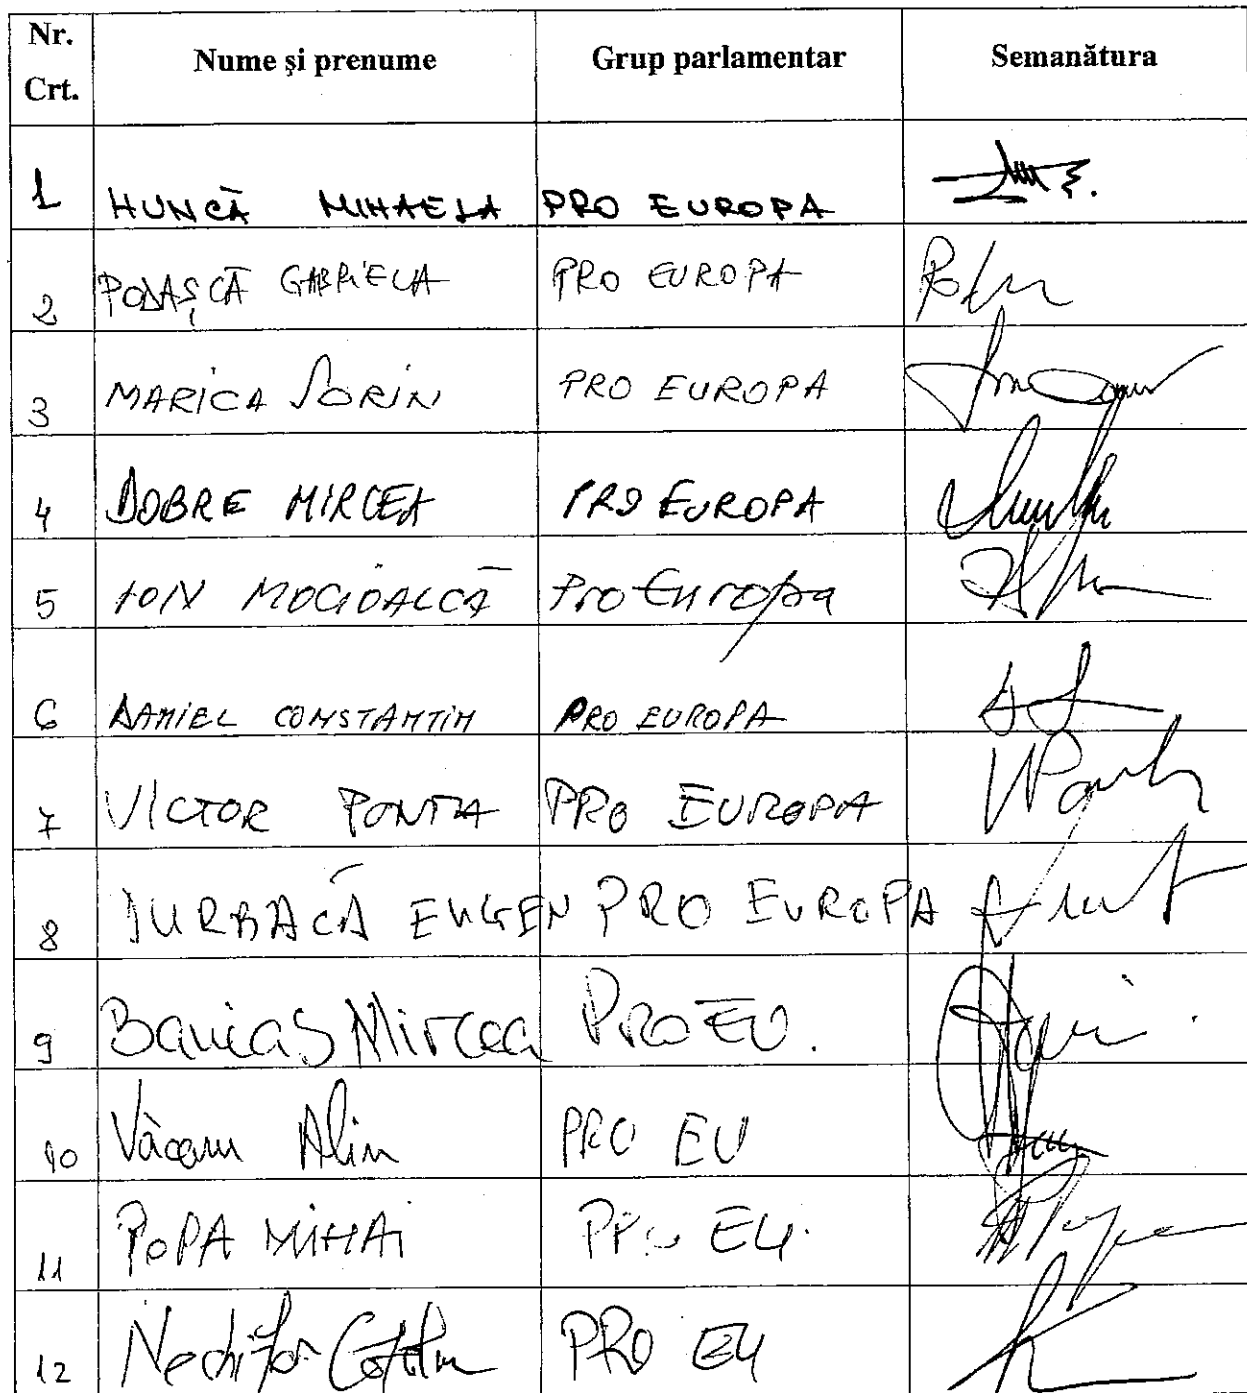 Nr. Crt. Nume și prenume Grup parlamentar Semanătura
1 HUNCĂ MIHAELA PRO EUROPA
2 PODAȘCĂ GABRIELA PRO EUROPA
3 MARICA SORIN PRO EUROPA
4 DOBRE MIRCEA PRO EUROPA
5 ION MOCIOALCĂ Pro Europa
6 DANIEL CONSTANTIN PRO EUROPA
7 VICTOR PONTA PRO EUROPA
8 DURBACĂ EUGEN PRO EUROPA
9 Banias Mircea PRO EU.
10 Văcaru Alin PRO EU
11 POPA MIHAI PRO EU.
12 Nechifor PRO EU